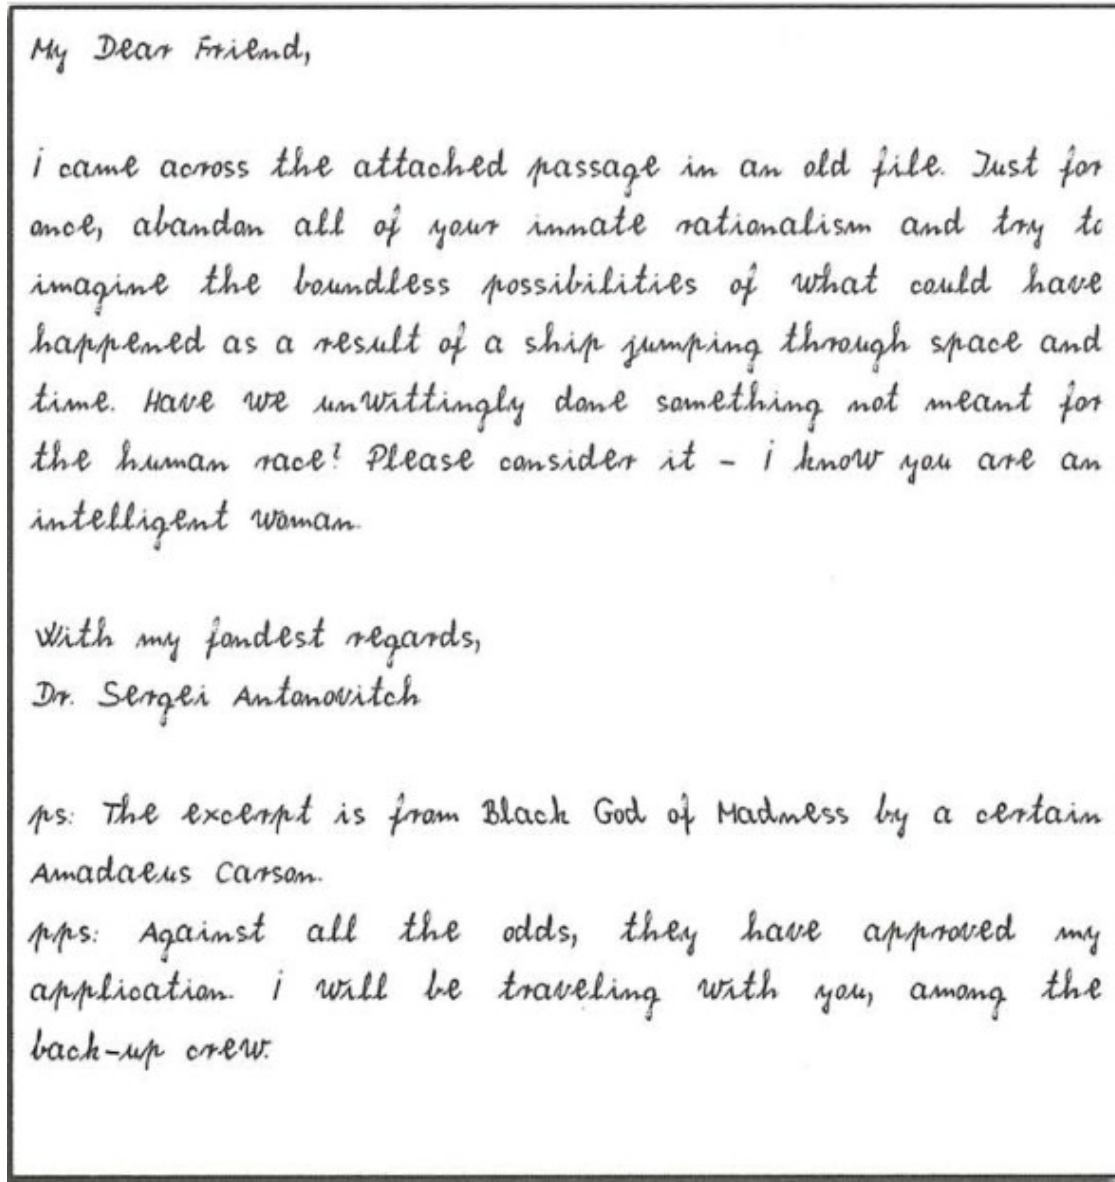 My Dear Friend,
i came across the attached passage in an old file. Just for
once, abandon all of your innate rationalism and try to
imagine the boundless possibilities of what could have
happened as a result of a ship jumping through space and
time. Have we unwittingly done something not meant for
the human race? Please consider it - i know you are an
intelligent woman.
With my fondest regards,
Dr. Sergei Antonovitch
ps: The excerpt is from Black God of Madness by a certain
Amadaeus Carson.
pps: Against all the odds, they have approved my
application. i will be traveling with you, among the
back-up crew.